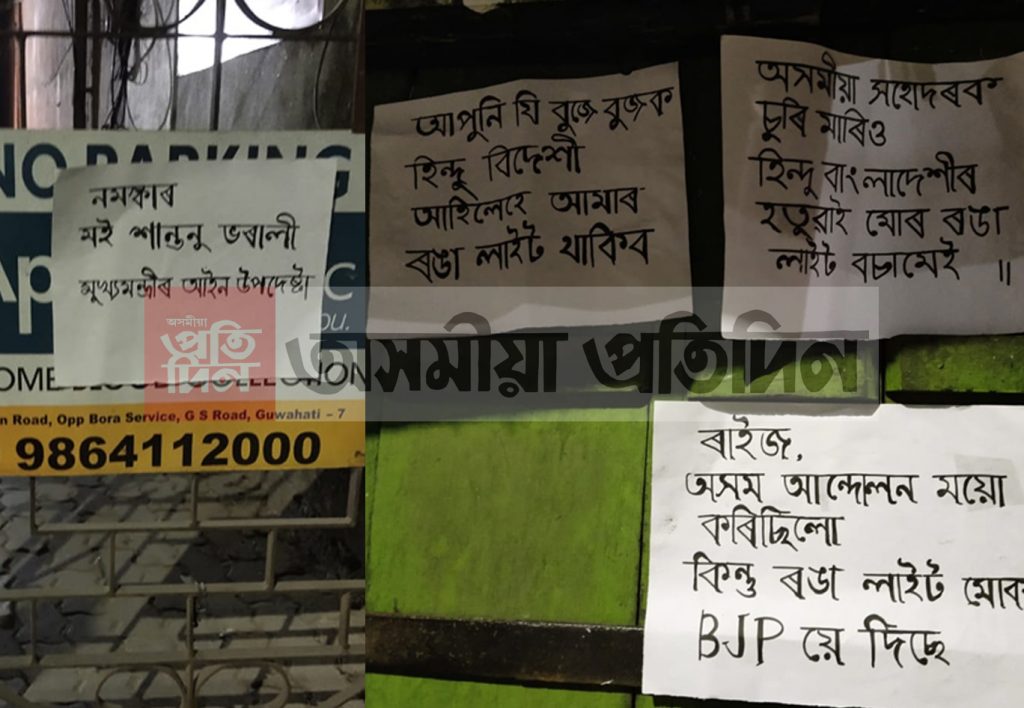 NO PARKING
নমস্কাৰ
মই শান্তনু ভৰালী
মুখ্যমন্ত্ৰীৰ আইন উপদেষ্টা
Ap
c
ou.
OME
COLLECTION
n Road, Opp Bora Service, G S Road, Guwahati - 7
9864112000
আপুনি যি বুজে বুজক
হিন্দু বিদেশী
আহিলেহে আমাৰ
ৰঙা লাইট থাকিব
অসমীয়া সহোদৰক
চুৰি মাৰিও
হিন্দু বাংলাদেশীৰ
হতুৱাই মোৰ ৰঙা
লাইট বচামেই ॥
ৰাইজ,
অসম আন্দোলন ময়ো
কৰিছিলো
কিন্তু ৰঙা লাইট মোৰ
BJP য়ে দিছে
অসমীয়া
প্ৰতি
দিন
অসমীয়া প্ৰতিদিন